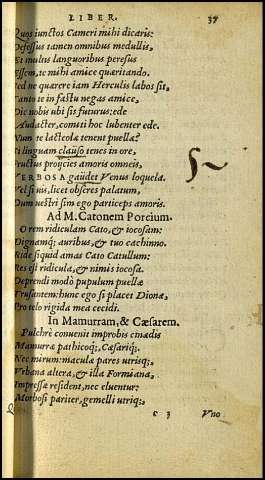 LIBER. 37
Quos iunctos Cameri mihi dicaris:
Defessus tamen omnibus medullis,
Et multis languoribus peresus
Essem, te mihi amice quæritando.
Sed ne quærere iam Herculis labos sit,
Tanto te in fastu negas amice,
Dic nobis ubi sis futurus: ede
Audacter, comitti hoc lubenter ede.
Num te lacteolæ tenent puellæ?
Si linguam clauso tenes in ore,
Fructus proijcies amoris omneis,
VERBOSA gaudet Venus loquela.
Vel si uis, licet obseres palatum,
Dum uestri sim ego particeps amoris.
Ad M. Catonem Porcium.
O rem ridiculam Cato, & iocosam:
Dignamq; auribus, & tuo cachinno.
Ride siquid amas Cato Catullum:
Res est ridicula, & nimis iocosa.
Deprendi modò pupulum puellæ
Trusantem: hunc ego si placet Dionæ,
Pro telo rigida mea cecidi.
In Mamurram, & Cæsarem.
Pulchrè conuenit improbis cinædis
Mamurræ pathicoq́;, Cæsariq́;.
Nec mirum: maculæ pares utrisq́;,
Vrbana altera, & illa Formiana,
Impressæ resident, nec eluentur:
Morbosi pariter, gemelli utriq́;,
c 3 Vno